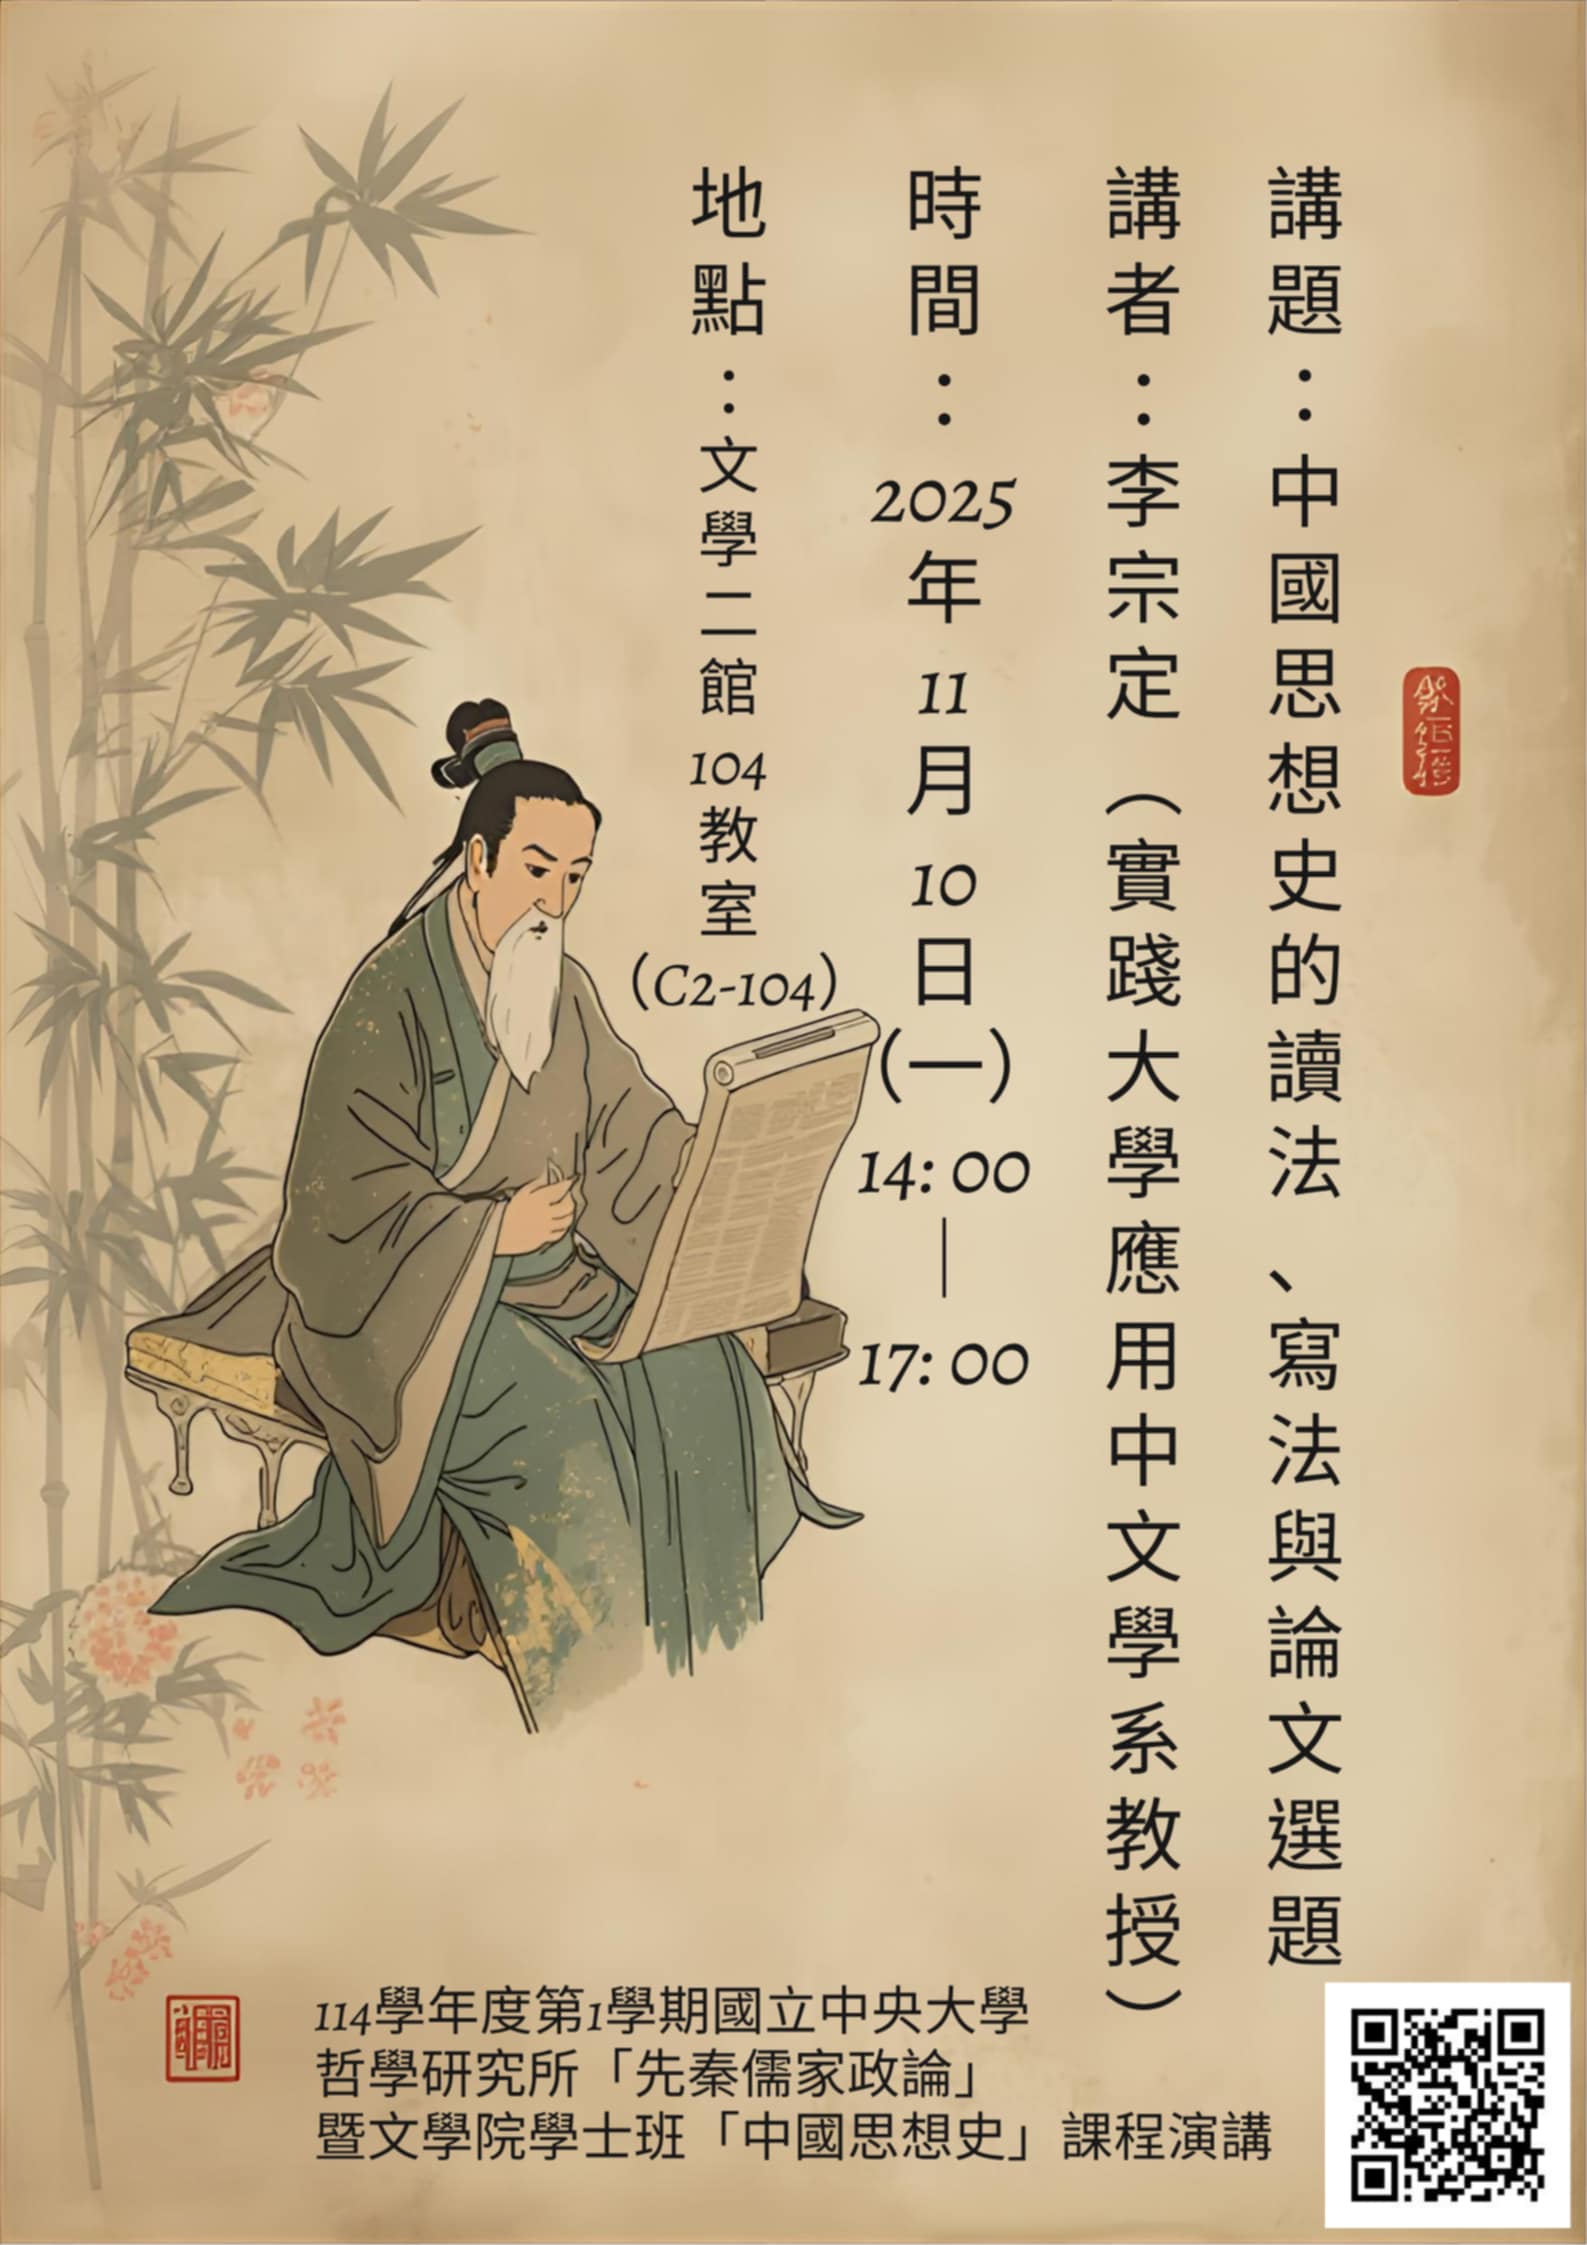 講題：中國思想史的讀法、寫法與論文選題
講者：李宗定（實踐大學應用中文學系教授）
時間：2025年11月10日(一)14:00｜17:00
地點：文學二館104教室(C2-104)
114學年度第1學期國立中央大學
哲學研究所「先秦儒家政論」
暨文學院學士班「中國思想史」課程演講